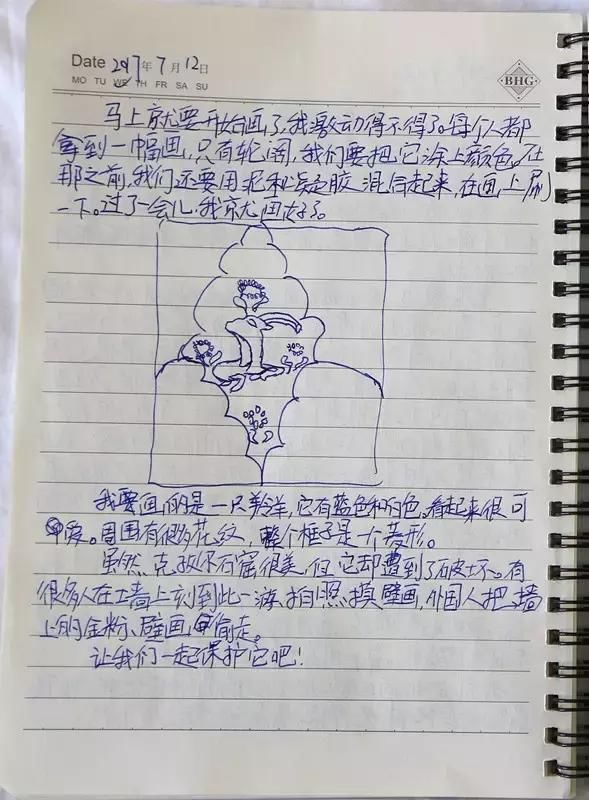 Date 2017年7月12日
BHG
MO TU WE TH FR SA SU
马上就要开始画了,我激动得不得了。每个人都
拿到一幅画,只有轮阔,我们要把它涂上颜色。在
那之前,我们还要用泥和凝胶混合起来,在画上刷
一下。过了一会儿,我就画好了。
我要画的是一只羊,它有蓝色和白色,看起来很可
爱。周围有很多花纹,整个框子是一个菱形。
虽然克孜尔石窟很美,但它却遭到了破坏。有
很多人在土墙上刻到此一游、拍照、摸壁画,外国人把墙
上的金粉、壁画偷走。
让我们一起保护它吧!